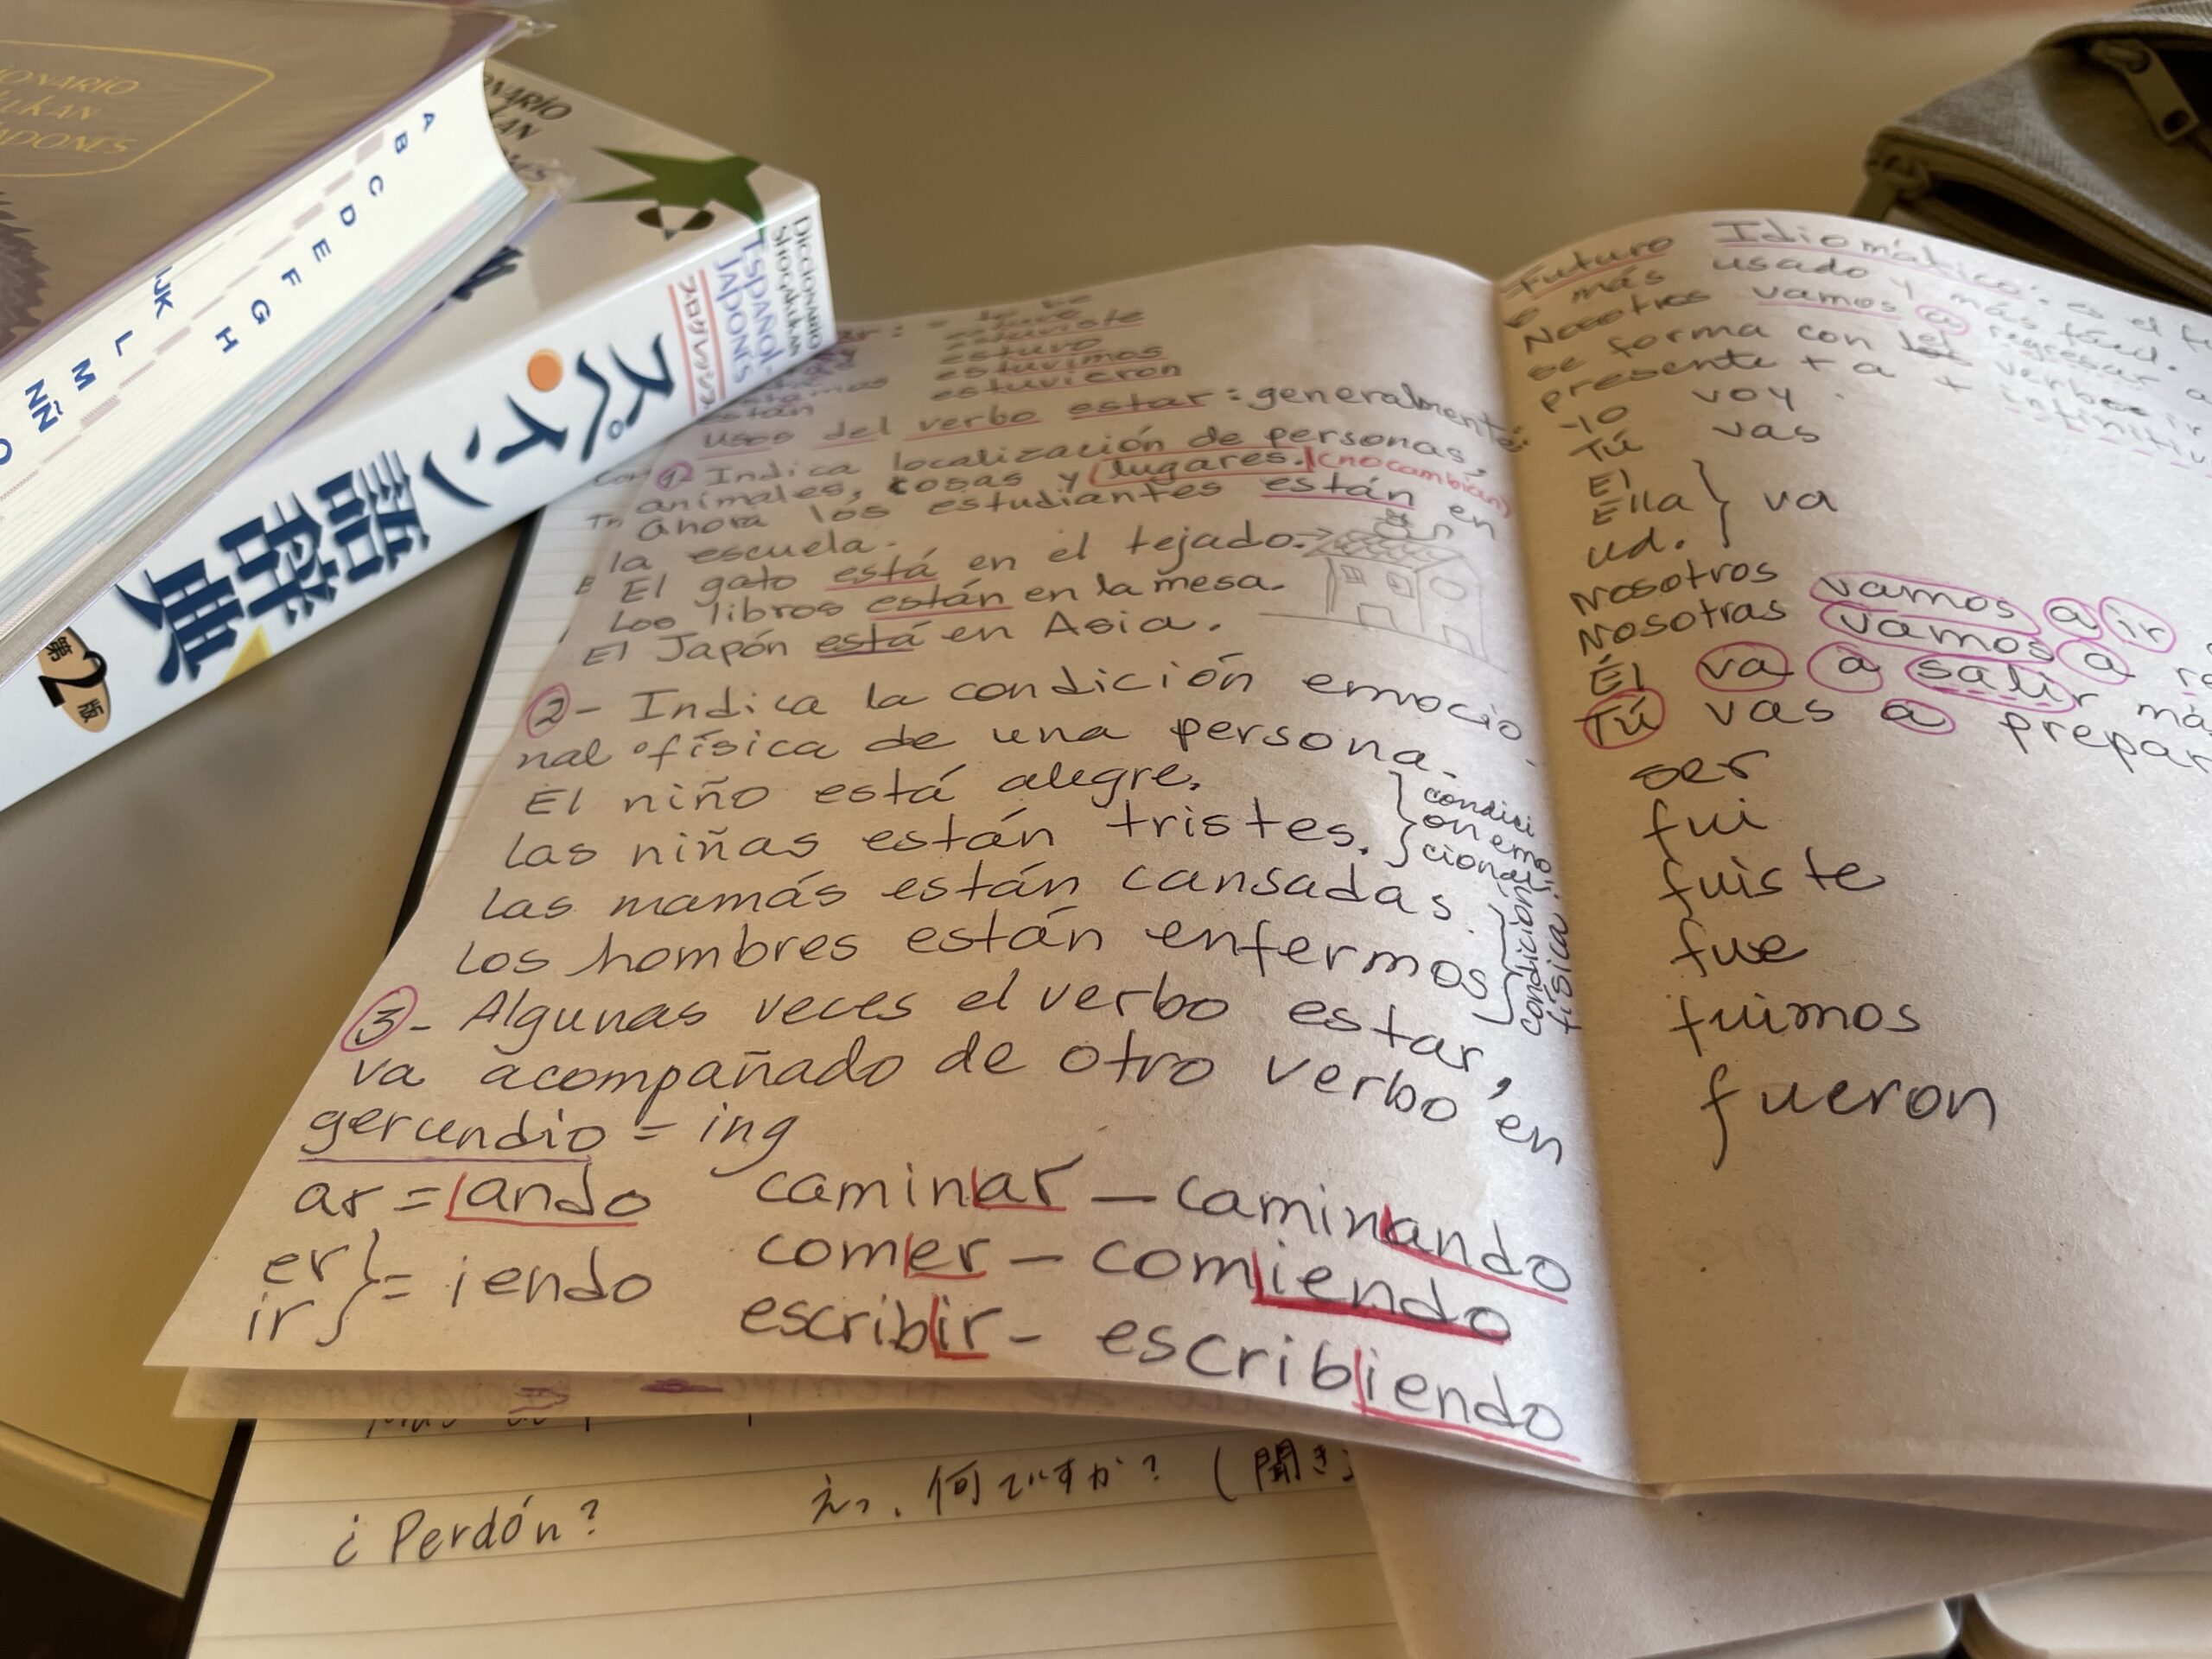 A
B
C
D
E
F
G
H
IJK
L
M
NÑ
O
Diccionario
Shogakukan
Español-
Japonés
プログレッシブ
スペイン語辞典
第2版
estuviste
estuvo
estuvimos
están estuvieron
usos del verbo estar: generalmente:
1- Indica localización de personas,
animales, cosas y lugares. (no cambian)
Ahora los estudiantes están en
la escuela.
El gato está en el tejado.
Los libros están en la mesa.
El Japón está en Asia.
2- Indica la condición emocio
nal o física de una persona.
El niño está alegre.
Las niñas están tristes.
condici
on emo
cional
Las mamás están cansadas.
Los hombres están enfermos
condición
física
3- Algunas veces el verbo estar,
va acompañado de otro verbo en
gerundio = ing
ar = ando caminar - caminando
er
ir = iendo comer - comiendo
escribir - escribiendo
Futuro Idiomático: es el
más usado y más fácil.
Nosotros vamos a regresar a
se forma con verbo ir
presente + a + infinitiv
Yo voy
Tú vas
El
Ella va
ud.
Nosotros vamos a ir
Nosotras vamos a
Él va a salir
Tú vas a prepar
ser
fui
fuiste
fue
fuimos
fueron
¿Perdón? えっ、何ですか？(聞き